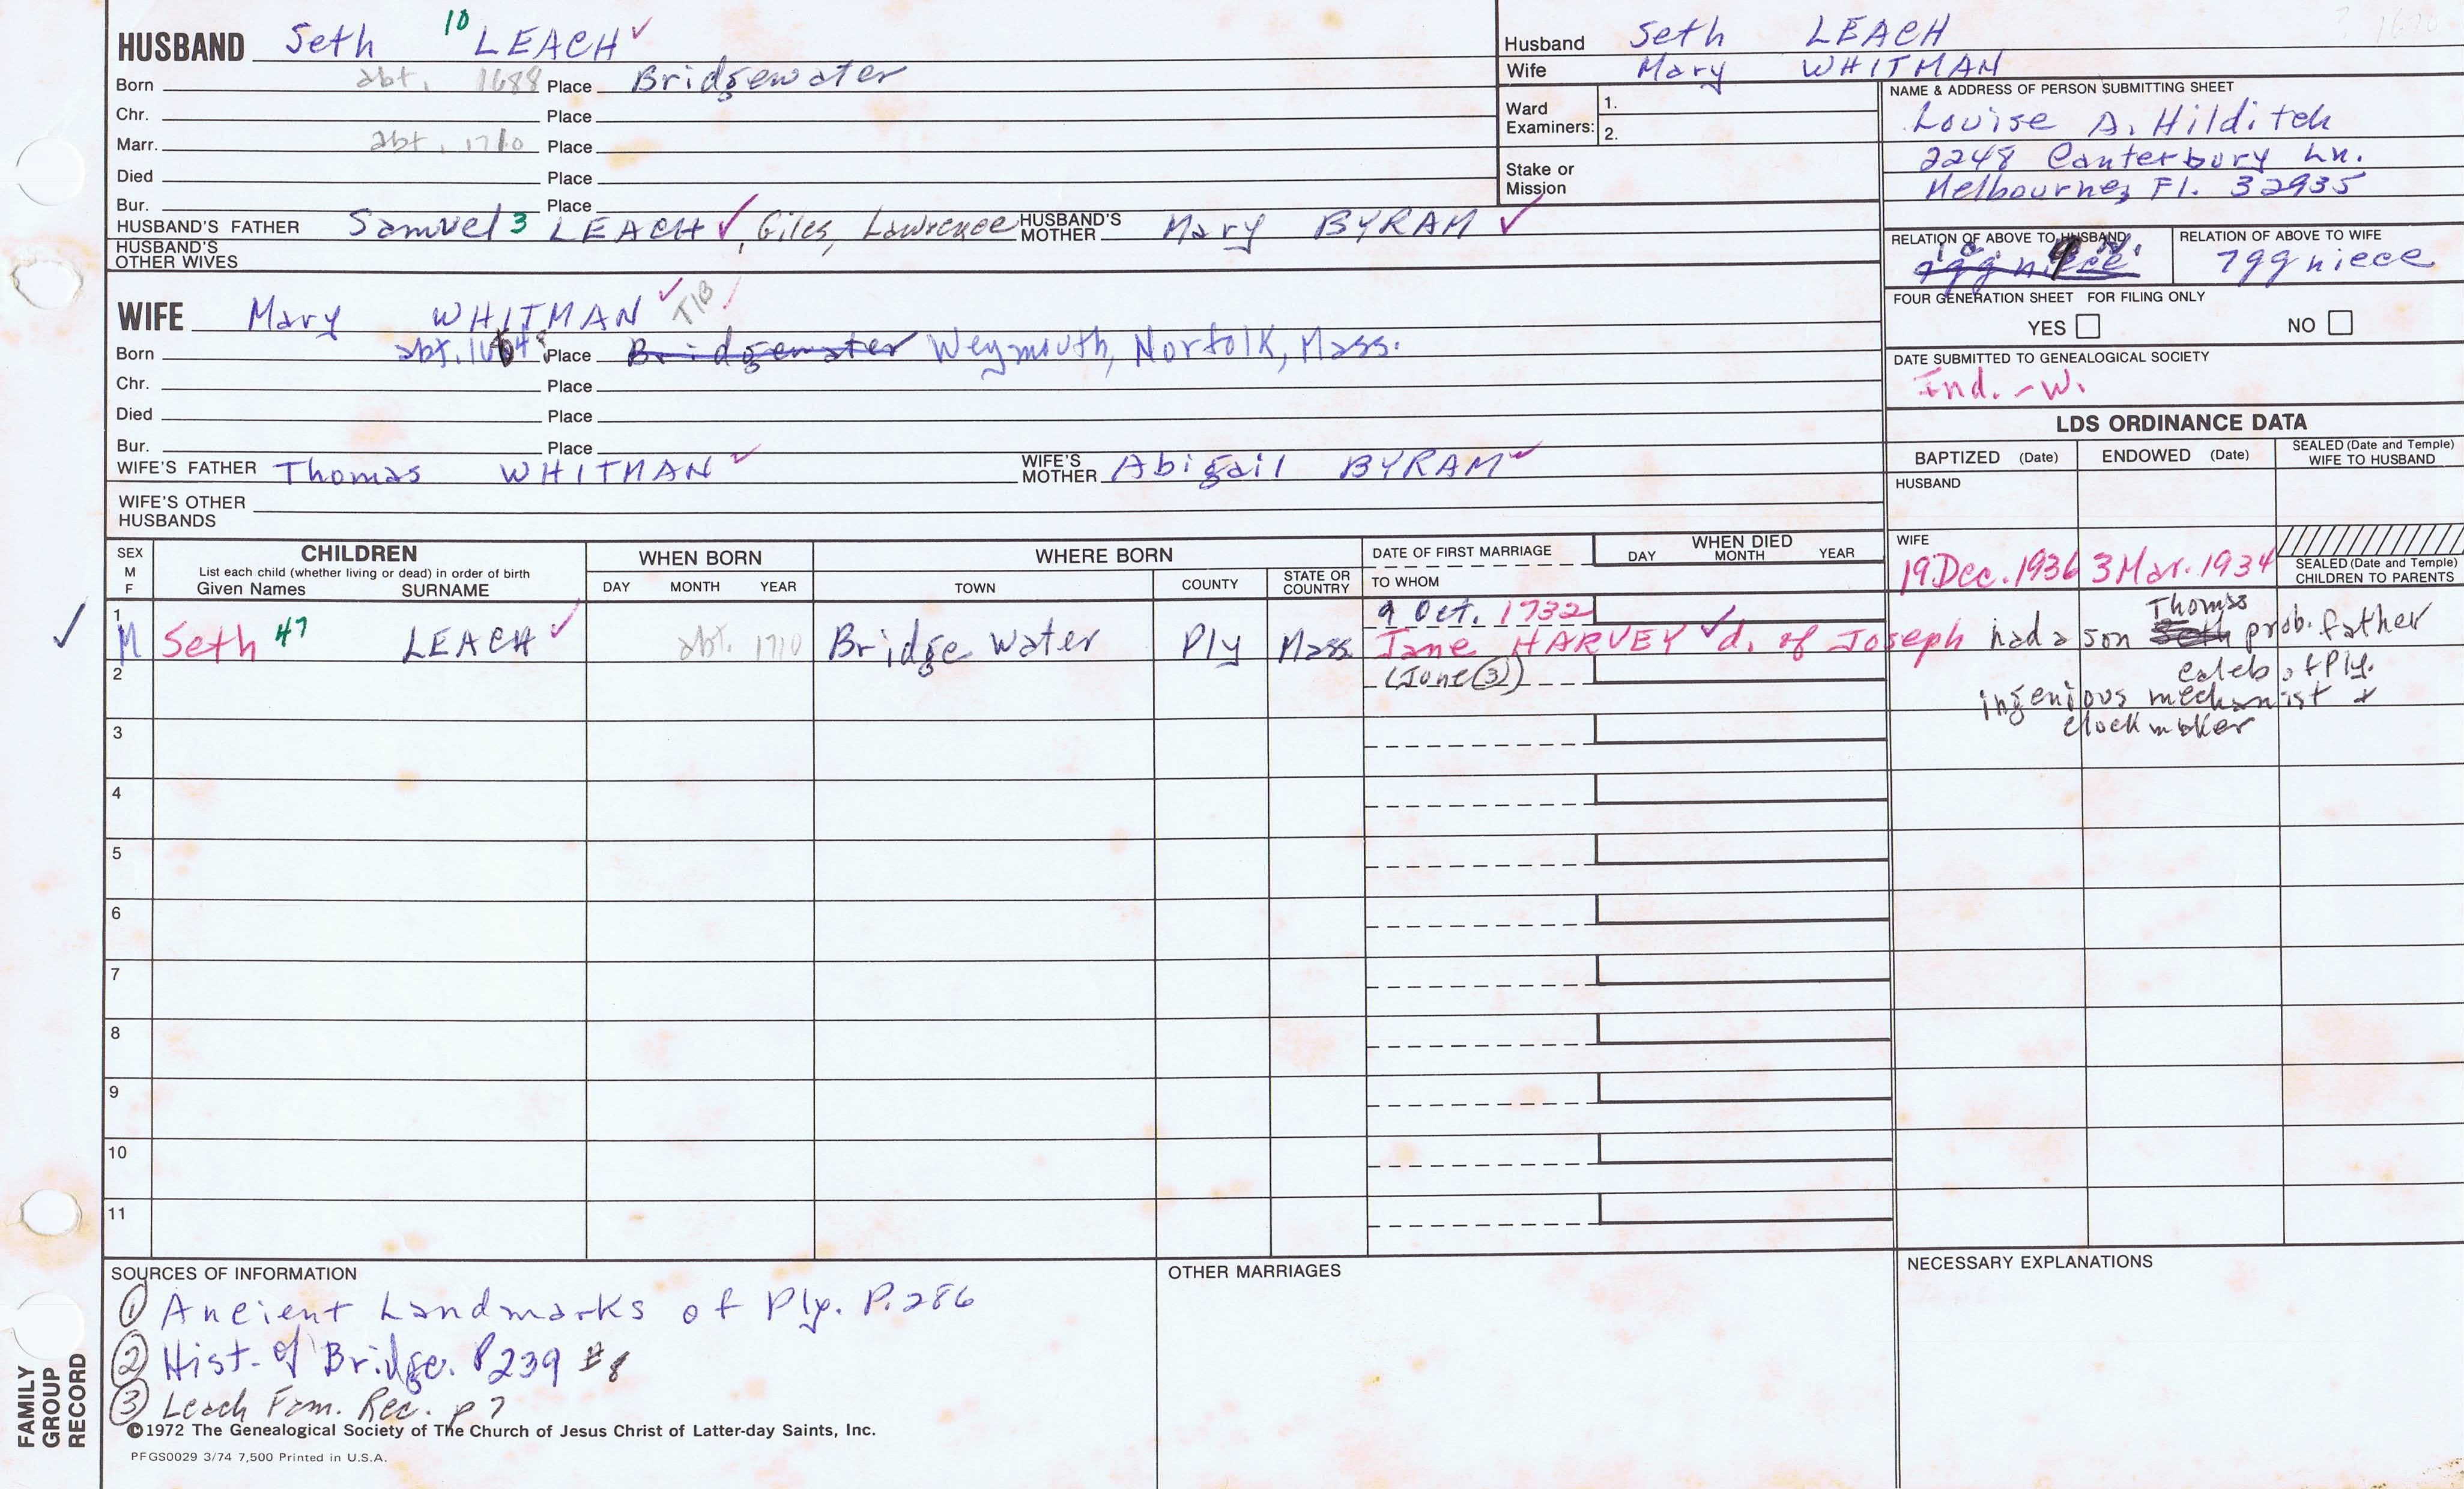 HUSBAND Seth 10 LEACH ✓
Born abt. 1688 Place Bridgewater
Chr. Place
Marr. abt. 1710 Place
Died Place
Bur. Place
HUSBAND'S FATHER Samuel 3 LEACH ✓, Giles, Lawrence HUSBAND'S MOTHER Mary BYRAM ✓
HUSBAND'S OTHER WIVES
Husband Seth LEACH
Wife Mary WHITMAN
Ward Examiners: 1.
2.
Stake or Mission
NAME & ADDRESS OF PERSON SUBMITTING SHEET
Louise A. Hilditch
2248 Canterbury Ln.
Melbourne, Fl. 32935
RELATION OF ABOVE TO HUSBAND
RELATION OF ABOVE TO WIFE
7gg niece
FOUR GENERATION SHEET FOR FILING ONLY
YES NO
DATE SUBMITTED TO GENEALOGICAL SOCIETY
Ind. - W.
WIFE Mary WHITMAN ✓ TIB
Born abt. Place Bridgewater Weymouth, Norfolk, Mass.
Chr. Place
Died Place
Bur. Place
WIFE'S FATHER Thomas WHITMAN ✓ WIFE'S MOTHER Abigail BYRAM ✓
WIFE'S OTHER HUSBANDS
LDS ORDINANCE DATA
BAPTIZED (Date) ENDOWED (Date) SEALED (Date and Temple) WIFE TO HUSBAND
HUSBAND
WIFE
19 Dec. 1936 3 Mar. 1934
SEALED (Date and Temple) CHILDREN TO PARENTS
SEX M F
CHILDREN
List each child (whether living or dead) in order of birth
Given Names SURNAME
WHEN BORN
DAY MONTH YEAR
WHERE BORN
TOWN COUNTY STATE OR COUNTRY
DATE OF FIRST MARRIAGE
TO WHOM
WHEN DIED
DAY MONTH YEAR
9 Oct. 1732
✓ 1 M Seth 47 LEACH ✓ abt. 1710 Bridge Water Ply Mass Jane HARVEY ✓ d. of Joseph had a son Seth Thomas prob. father
(June ③)
caleb of Ply.
ingenious mechanist +
clock maker
2
3
4
5
6
7
8
9
10
11
SOURCES OF INFORMATION
① Ancient Landmarks of Ply. P. 286
② Hist. of Bridge. P 239 #8
③ Leach Fam. Rec. p 7
OTHER MARRIAGES
NECESSARY EXPLANATIONS
©1972 The Genealogical Society of The Church of Jesus Christ of Latter-day Saints, Inc.
PFGS0029 3/74 7,500 Printed in U.S.A.
FAMILY GROUP RECORD